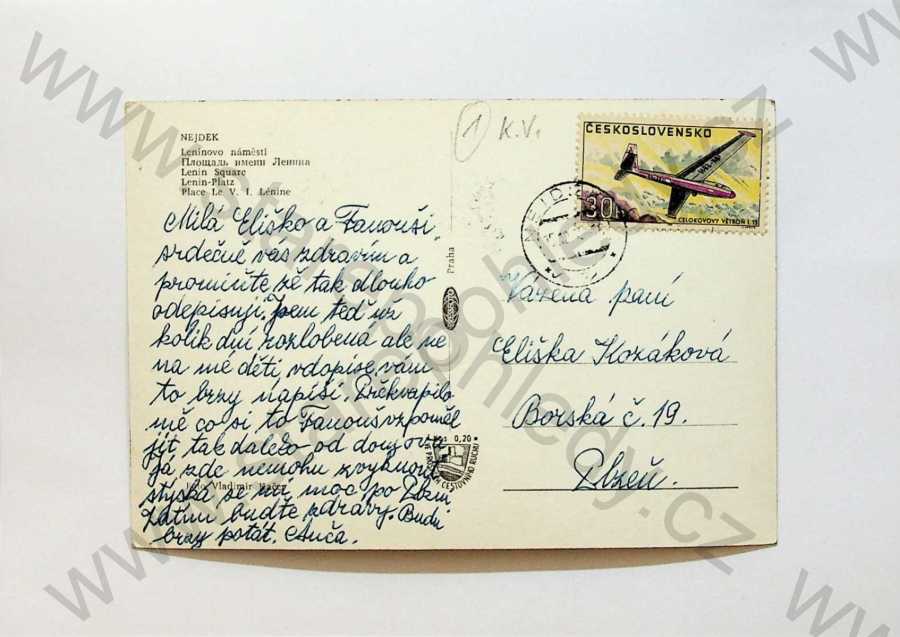 NEJDEK
Leninovo náměstí
Площадь имени Ленина
Lenin Square
Lenin-Platz
Place Le V. I. Lénine
Milá Eliško a Fanouši,
srdečně vás zdravím a
promiňte že tak dlouho
odepisuji. Jsem teď už
kolik dní rozlobená ale ne
na mé děti v dopise vám
to brzy napíši. Překvapilo
mě co si to Fanouš vzpoměl
jít, tak daleko od domova
já zde nemohu zvyknout
stýská se mi moc po Plzni
Zatím buďte zdrávy. Budu
brzy psát. Anča.
Foto Vladimír
Praha
Kčs 0,20
CESTOVNÍHO RUCHU
1 K.V.
ČESKOSLOVENSKO
30
CELOKOVOVÝ VĚTROŇ L 13
NEJDEK
Vážená paní
Eliška Kozáková
Borská č. 19.
Plzeň.
www.staropohledy.cz
www.staropohledy.cz